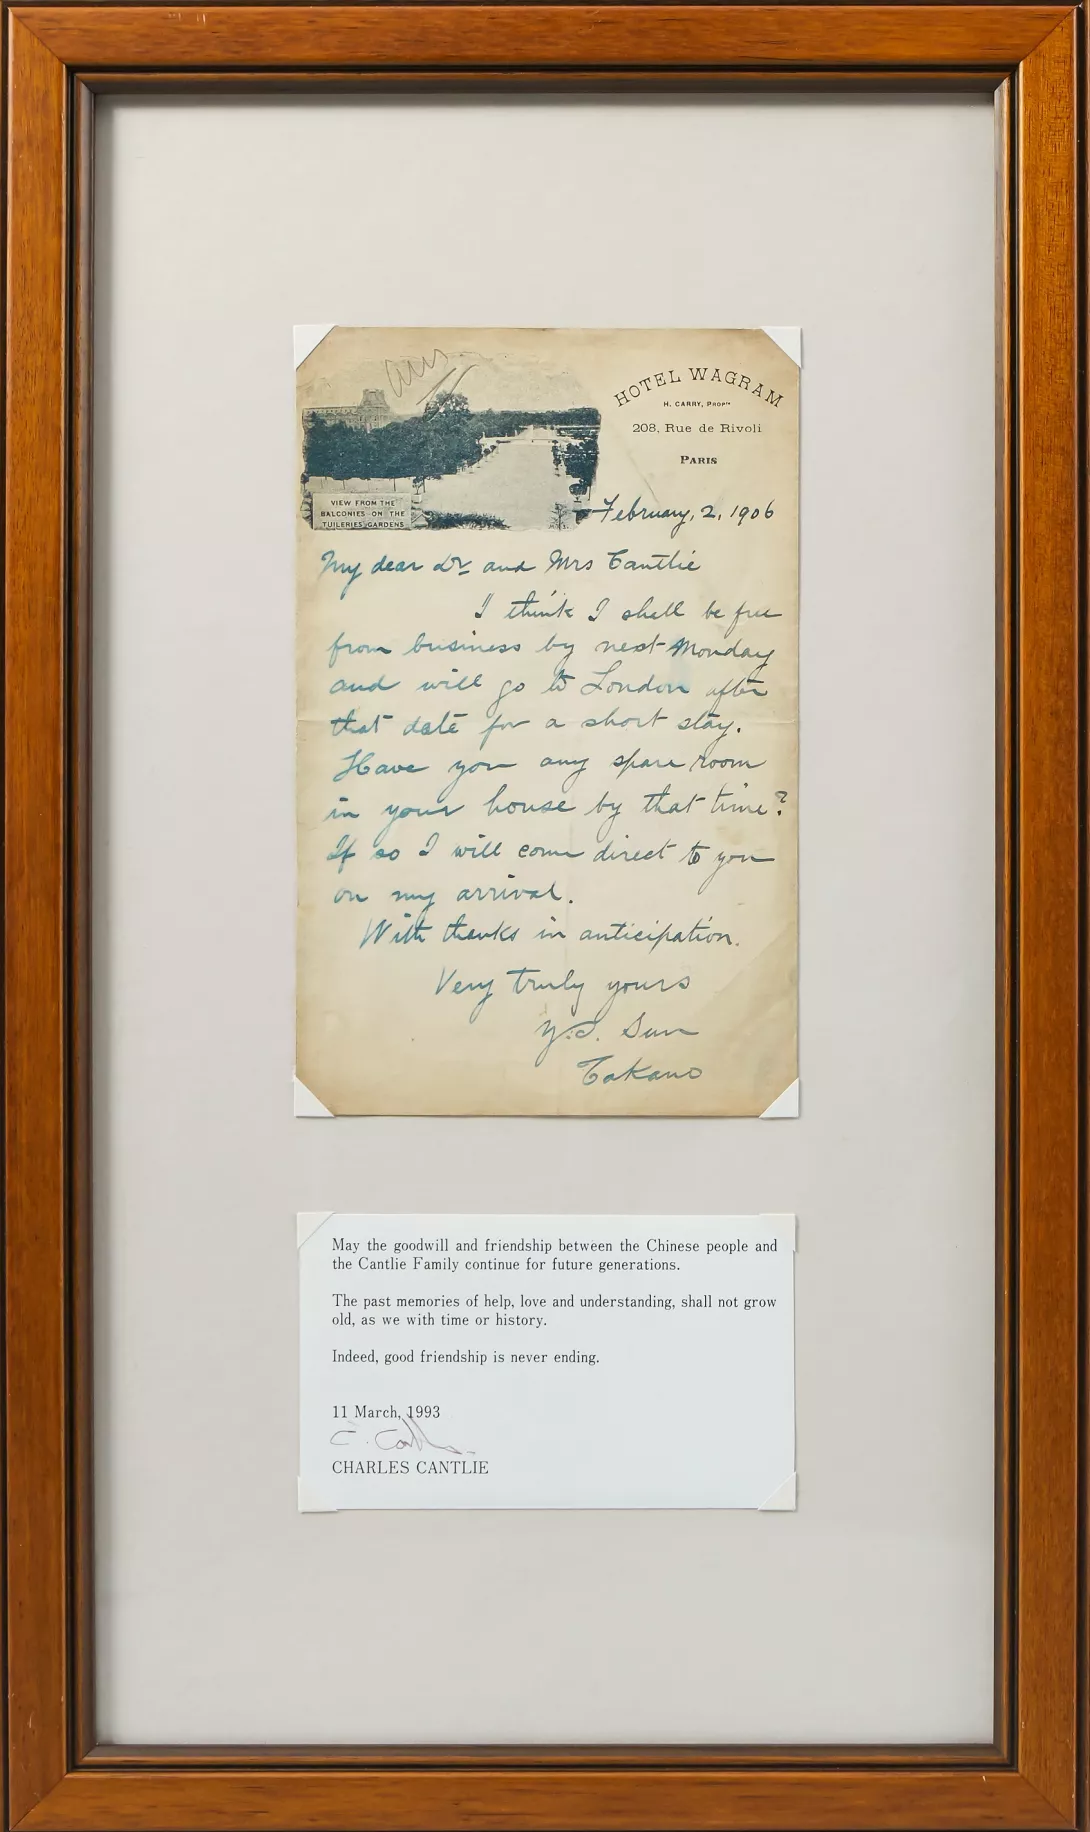 ans
HOTEL WAGRAM
H. CARRY, Propr
208, Rue de Rivoli
PARIS
VIEW FROM THE
BALCONIES ON THE
TUILERIES GARDENS
February, 2, 1906
My dear Dr and Mrs Cantlie
I think I shall be free
from business by next Monday
and will go to London after
that date for a short stay.
Have you any spare room
in your house by that time?
If so I will come direct to you
on my arrival.
With thanks in anticipation.
Very truly yours
Y.S. Sun
Takano
May the goodwill and friendship between the Chinese people and
the Cantlie Family continue for future generations.
The past memories of help, love and understanding, shall not grow
old, as we with time or history.
Indeed, good friendship is never ending.
11 March, 1993
C. Cantlie
CHARLES CANTLIE